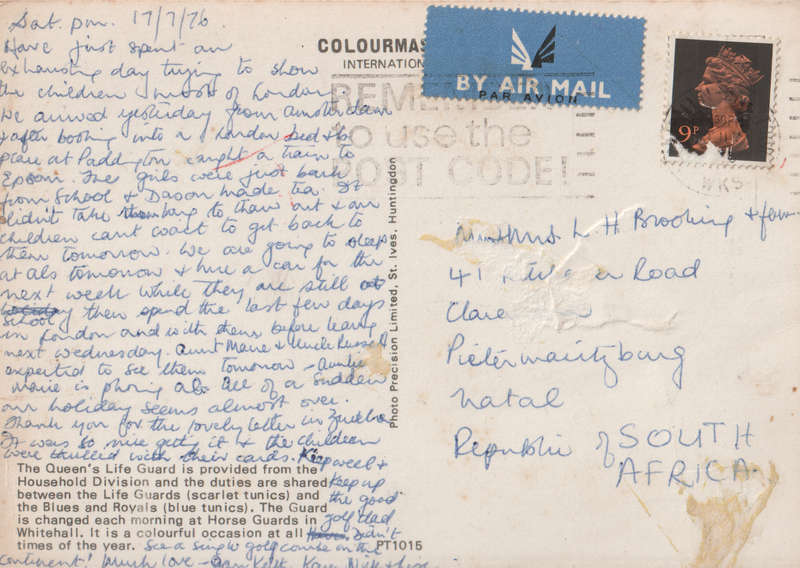 Sat. pm. 17/7/76
Have just spent an
exhausting day trying to show
the children most of London
We arrived yesterday from Amsterdam
& after booking into a London bed & b
place at Paddington caught a train to
Epsom. The girls were just back
from School & Dason made tea. It
didn't take long to thaw out & our
children cant wait to get back to
them tomorrow. We are going to sleep
at als tomorrow & hire a car for the
next week while they are still at
School then spend the last few days
in London and with them before leaving
next Wednesday. Aunt Marie & Uncle Russell
expected to see them tomorrow - Auntie
Marie is phoning als. All of a sudden
our holiday seems almost over.
Thank you for the lovely letter in
It was so nice getting it & the children
were thrilled with their cards. Keep well &
keep up
the good
golf Dad
Didn't
See a single golf course on the
continent! Much love -
The Queen's Life Guard is provided from the
Household Division and the duties are shared
between the Life Guards (scarlet tunics) and
the Blues and Royals (blue tunics). The Guard
is changed each morning at Horse Guards in
Whitehall. It is a colourful occasion at all
times of the year.
PT1015
COLOURMAS
INTERNATION
Photo Precision Limited, St. Ives, Huntingdon
BY AIR MAIL
PAR AVION
REMEM
to use the
POST CODE!
9P
L. H. Brooking & fam
41 Road
Clare
Pietermaritzburg
Natal
Republic of SOUTH
AFRICA